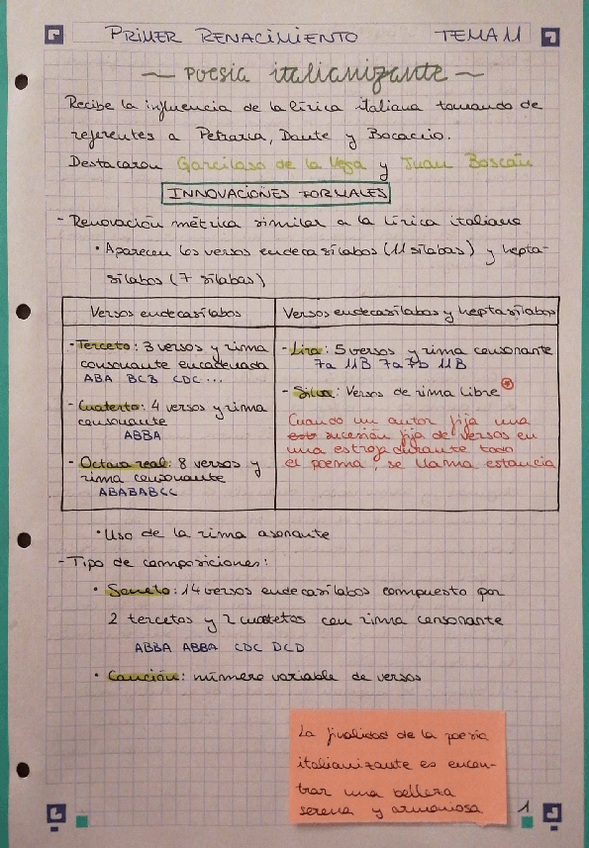 PRIMER RENACIMIENTO TEMA 11
~ Poesía italianizante ~
Recibe la influencia de la lírica italiana tomando de
referentes a Petrarca, Dante y Bocaccio.
Destacaron Garcilaso de la Vega y Juan Boscán
INNOVACIONES FORMALES
- Renovación métrica similar a la lírica italiana
• Aparecen los versos endecasílabos (11 sílabas) y hepta-
sílabos (7 sílabas)
Versos endecasílabos
- Terceto: 3 versos y rima
consonante encadenada
ABA BCB CDC ...
- Cuarteto: 4 versos y rima
consonante
ABBA
- Octava real: 8 versos y
rima consonante
ABABABCC
Versos endecasílabos y heptasílabos
- Lira: 5 versos y rima consonante
7a 11B 7a 7b 11B
- Silva: Versos de rima libre
Cuando un autor fija una
sucesión fija de versos en
una estrofa durante todo
el poema, se llama estancia
• Uso de la rima asonante
- Tipo de composiciones:
• Soneto: 14 versos endecasílabos compuesto por
2 tercetos y 2 cuartetos con rima consonante
ABBA ABBA CDC DCD
• Canción: número variable de versos
La finalidad de la poesía
italianizante es encon-
trar una belleza
serena y armoniosa
1